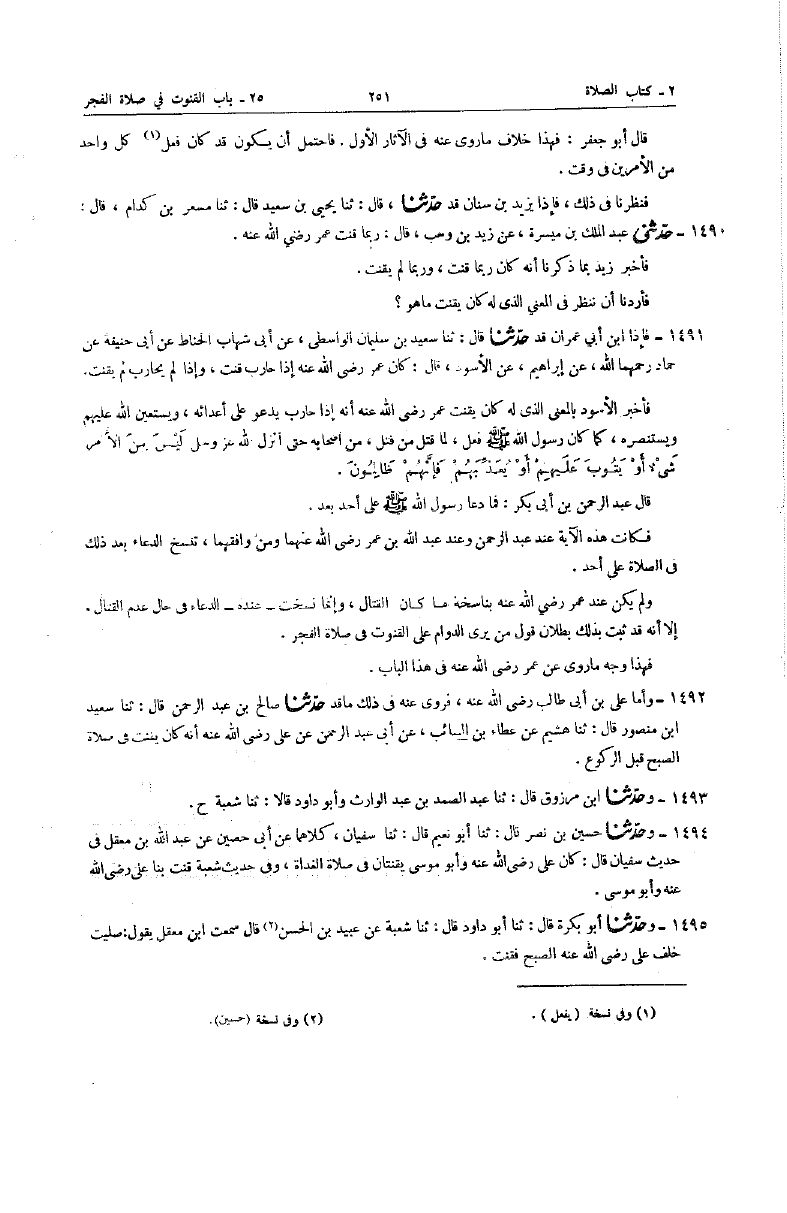 ٢ - كتاب الصلاة ٢٥١ ٢٥ - باب القنوت في صلاة الفجر
قال أبو جعفر : فهذا خلاف ماروى عنه فى الآثار الأول . فاحتمل أن يكون قد كان فعل(١) كل واحد
من الأمرين فى وقت .
فنظرنا فى ذلك ، فإذا يزيد بن سنان قد حدّثنا ، قال : ثنا يحيى بن سعيد قال : ثنا مسعر بن كدام ، قال :
١٤٩٠ - حدّثنى عبد الملك بن ميسرة ، عن زيد بن وهب ، قال : ربما قنت عمر رضي الله عنه .
فأخبر زيد بما ذكرنا أنه كان ربما قنت ، وربما لم يقنت .
فأردنا أن ننظر فى المعني الذى له كان يقنت ماهو ؟
١٤٩١ - فإذا ابن أبي عمران قد حدّثنا قال : ثنا سعيد بن سليمان الواسطى ، عن أبى شهاب الحناط عن أبى حنيفة عن
حماد رحمهما الله ، عن إبراهيم ، عن الأسود ، قال : كان عمر رضى الله عنه إذا حارب قنت ، وإذا لم يحارب لم يقنت.
فأخبر الأسود بالمعنى الذى له كان يقنت عمر رضى الله عنه أنه إذا حارب يدعو على أعدائه ، ويستعين الله عليهم
ويستنصره ، كما كان رسول الله ﷺ فعل ، لما قتل من قتل ، من أصحابه حتى أنزل الله عز وجل لَيْسَ مِنَ الأَمْرِ
شَىْءٌ أَوْ يَتُوبَ عَلَيْهِمْ أَوْ يُعَذِّبَهُمْ فَإِنَّهُمْ ظَالِمُونَ .
قال عبد الرحمن بن أبى بكر : فما دعا رسول الله ﷺ على أحد بعد .
فكانت هذه الآية عند عبد الرحمن وعند عبد الله بن عمر رضى الله عنهما ومن وافقهما ، تنسخ الدعاء بعد ذلك
فى الصلاة على أحد .
ولم يكن عند عمر رضي الله عنه بناسخة ما كان القتال ، وإنما نسخت - عنده - الدعاء فى حال عدم القتال .
إلا أنه قد ثبت بذلك بطلان قول من يرى الدوام على القنوت فى صلاة الفجر .
فهذا وجه ماروى عن عمر رضى الله عنه فى هذا الباب .
١٤٩٢ - وأما على بن أبى طالب رضى الله عنه ، فروى عنه فى ذلك ماقد حدّثنا صالح بن عبد الرحمن قال : ثنا سعيد
ابن منصور قال : ثنا هشيم عن عطاء بن السائب ، عن أبى عبد الرحمن عن على رضى الله عنه أنه كان يقنت فى صلاة
الصبح قبل الركوع .
١٤٩٣ - وحدّثنا ابن مرزوق قال : ثنا عبد الصمد بن عبد الوارث وأبو داود قالا : ثنا شعبة ح .
١٤٩٤ - وحدّثنا حسين بن نصر قال : ثنا أبو نعيم قال : ثنا سفيان ، كلاهما عن أبى حصين عن عبد الله بن معقل فى
حديث سفيان قال : كان على رضى الله عنه وأبو موسى يقنتان فى صلاة الغداة ، وفى حديث شعبة قنت بنا على رضى الله
عنه وأبو موسى .
١٤٩٥ - وحدّثنا أبو بكرة قال : ثنا أبو داود قال : ثنا شعبة عن عبيد بن الحسن(٢) قال سمعت ابن معقل يقول:صليت
خلف على رضى الله عنه الصبح فقنت .
(١) وفى نسخة ( يفعل ) . (٢) وفى نسخة (حسين).